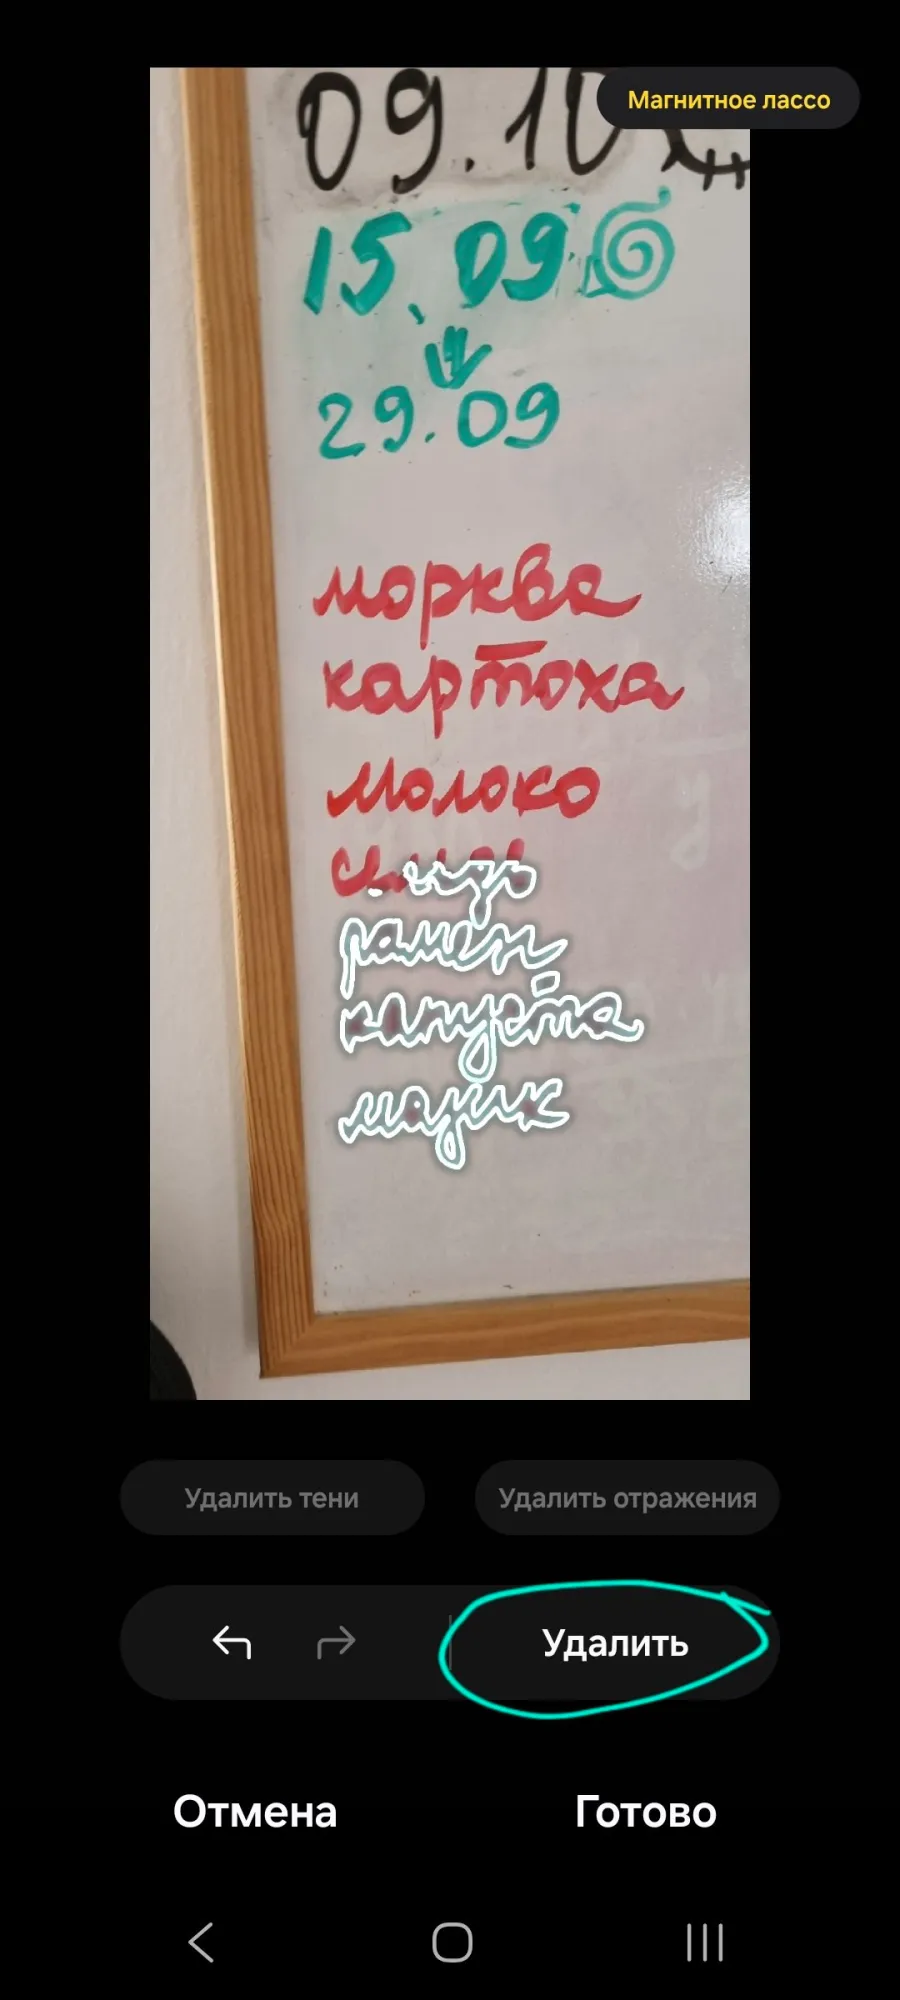 09.10
Магнитное лассо
15.09
29.09
морква
картоха
молоко
рамен
капуста
мазик
Удалить тени
Удалить отражения
Удалить
Отмена
Готово